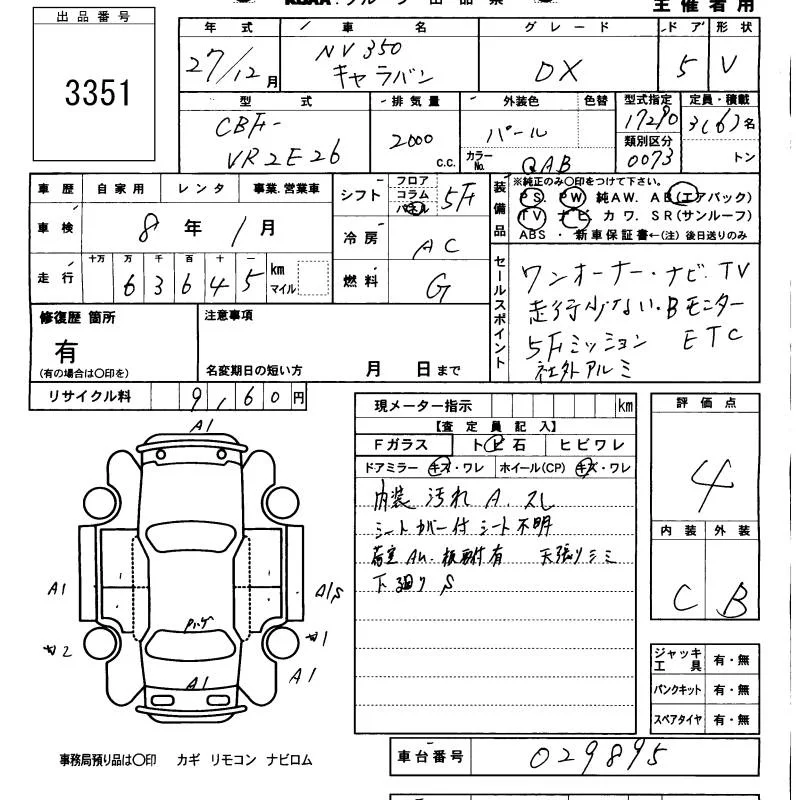 出品番号
3351
主催者用
年式 車名 グレード ドア 形状
27/12月 NV350 キャラバン DX 5 V
型式 排気量 外装色 色替 型式指定 定員・積載
CBF- VR2E26 2000 c.c. パール カラーNo. QAB 17290 類別区分 0073 3(6)名 トン
車歴 自家用 レンタ 事業.営業車
車検 8年 1月
走行 十万 万 千 百 十 一 63645 km マイル
シフト フロア コラム パネル 5F
冷房 AC
燃料 G
装備品
※純正のみ○印をつけて下さい。
PS. PW 純AW. AB(エアバック)
TV ナビ カワ. SR(サンルーフ)
ABS ・ 新車保証書←(注) 後日送りのみ
セールスポイント
ワンオーナー・ナビ. TV
走行少ない・Bモニター
5Fミッション ETC
社外アルミ
修復歴 箇所
有
(有の場合は○印を)
注意事項
名変期日の短い方 月 日まで
リサイクル料 9,60円
現メーター指示 km
【査定員記入】
Fガラス トビ石 ヒビワレ
ドアミラー キズ・ワレ ホイール(CP) キズ・ワレ
内装 汚れ A. スレ
シートカバー付 シート不明
荷室 AU. 板取付有 天張りシミ
下廻り S
評価点
4
内装 外装
C B
ジャッキ 工具 有・無
パンクキット 有・無
スペアタイヤ 有・無
A1
A1
A1
A1
事務局預り品は○印 カギ リモコン ナビロム
車台番号 029895